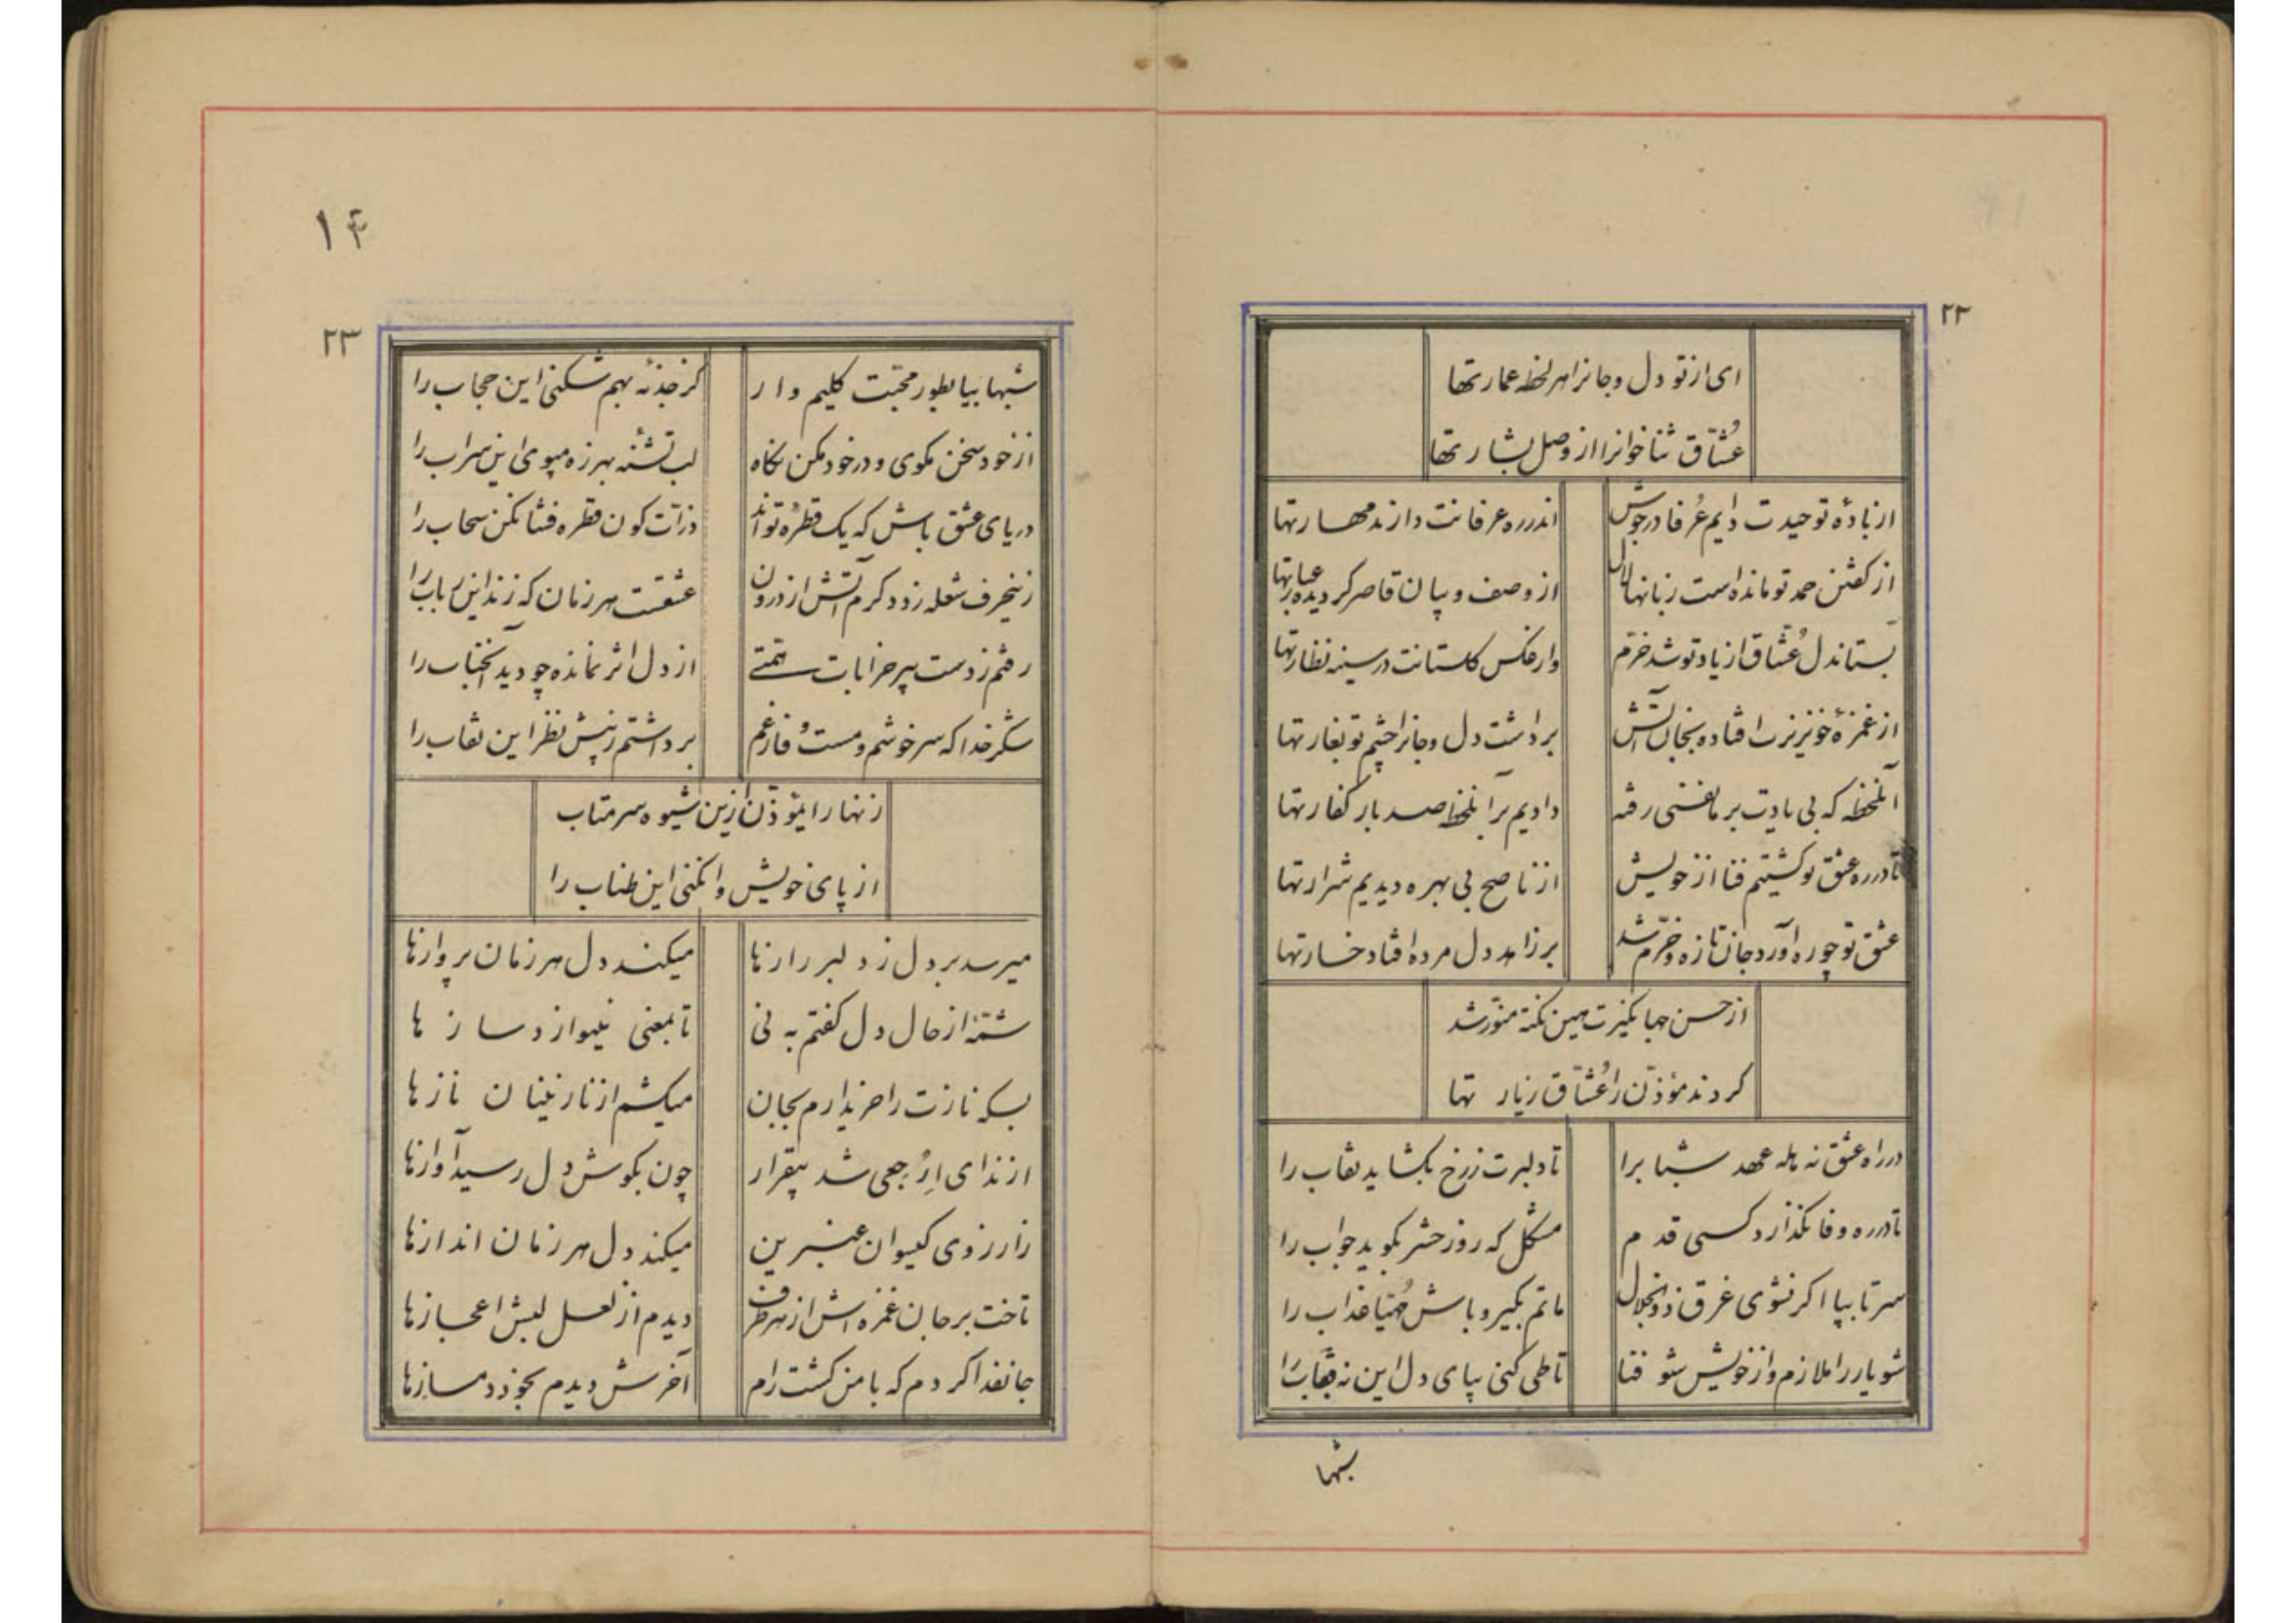 ۲۲
ای از تو دل و جانرا هر لحظه عمارتها
عُشّاق ثناخوانرا از وصل بشارتها
از بادهٔ توحیدت دایم عُرفا در جوش اندر ره عرفانت دارند مهارتها
از کفتن حمد تو مانده است زبانها لال از وصف و بیان قاصر کردیده عبارتها
بستاند دل عُشّاق از یاد تو شد خرّم وار عکس کلستانت در سینه نظارتها
از غمزهٔ خونریزت افتاده بجان آتش برداشت دل و جانرا چشم تو بغارتها
آنلحظه که بی یادت بر ما نفسی رفته دادیم بر آنلحظه صد بار کفارتها
تا در ره عشق تو کشتیم فنا از خویش از ناصح بی بهره دیدیم شرارتها
عشق تو چو ره آورد جان تازه و خرّم شد بر زاهد دل مرده افتاد خسارتها
از حسن جهانکیرت همین نکته منوّر شد
کردند مؤذّن را عُشّاق زیار تها
در راه عشق نه بله عهد شبابرا تا دلبرت ز رخ بکشاید نقاب را
تا در ره وفا نکذارد کسی قدم مشکل که روز حشر بکوید جواب را
سر تا بپا اکر نشوی غرق ذوالجلال ماتم بکیر و باش مُهیّا عذاب را
شو یار را ملازم و از خویش شو فنا تا طی کنی بپای دل این نه قباب را
شبها
۱۴
۲۳
شبها بیا بطور محبّت کلیم وار کز جذبه بهم شکنی این حجاب را
از خود سخن مکوی و در خود مکن نکاه لب تشنه بهرزه مپوی این سراب را
دریای عشق باش که یک قطرهٔ تواند ذرّات کون قطره فشانکن سحاب را
زینحرف شعله زد دکرم آتش از درون عشقست هر زمان که زند این رباب را
رفتم ز دست پیر خرابات همتی از دل اثر نمانده چو دید آنجناب را
شکر خدا که سرخوشم و مست و فارغم برداشتم ز پیش نظر این نقاب را
زنهار ای مؤذّن ازین شیوه سر متاب
از پای خویش وا نکنی این طناب را
میرسد بر دل ز دلبر رازها میکند دل هر زمان پروازها
شمّه از حال دل کفتم به نی تا بمعنی نی نواز دسازها
بسکه نازت را خریدارم بجان میکشم از نازنینان نازها
از ندای اِرْجعی شد بیقرار چون بکوش دل رسید آوازها
زارزوی کیسوان عنبرین میکند دل هر زمان اندازها
تاخت بر جان غمزه اش از هر طرف دیدم از لعل لبش اعجازها
جانفدا کردم که با من کشت رام آخرش دیدم بخود دمسازها